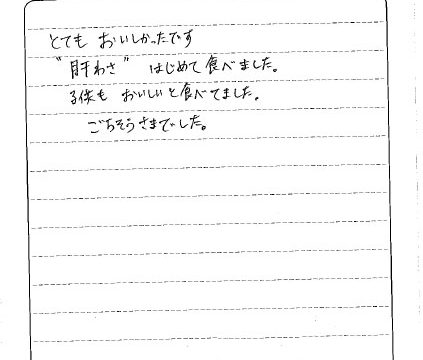 とても おいしかったです
"肝わさ" はじめて食べました。
子供も おいしいと食べてました。
ごちそうさまでした。